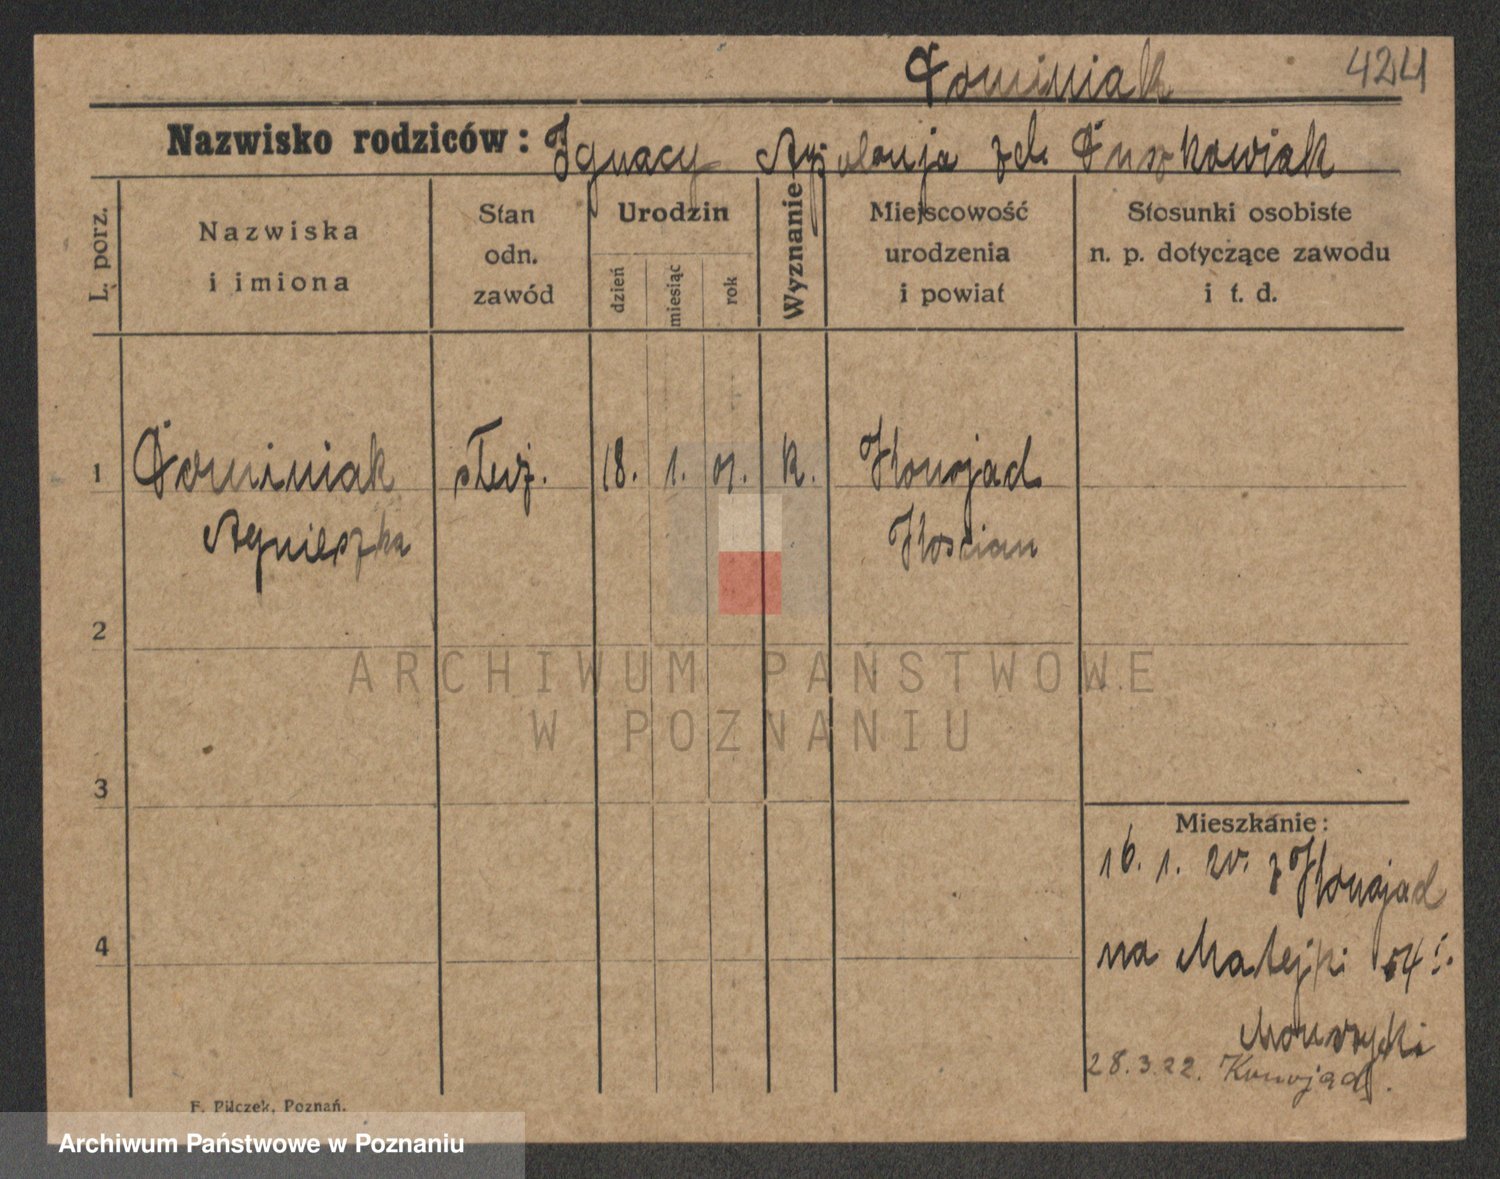 Dominiak 424
Nazwisko rodziców: Ignacy Apolonja zd.
L. porz.
Nazwiska i imiona
Stan odn. zawód
Urodzin
dzień
miesiąc
rok
Wyznanie
Miejscowość urodzenia i powiat
Stosunki osobiste n. p. dotyczące zawodu i t. d.
1 Dominiak służ. 18. 1. 01. k. Konojad
Agnieszka Kościan
2
ARCHIWUM PAŃSTWOWE
W POZNANIU
3
Mieszkanie:
16. 1. 20. z Konojad
4
na Matejki 54
28.3.22. Konojad.
F. Pilczek, Poznań.
Archiwum Państwowe w Poznaniu